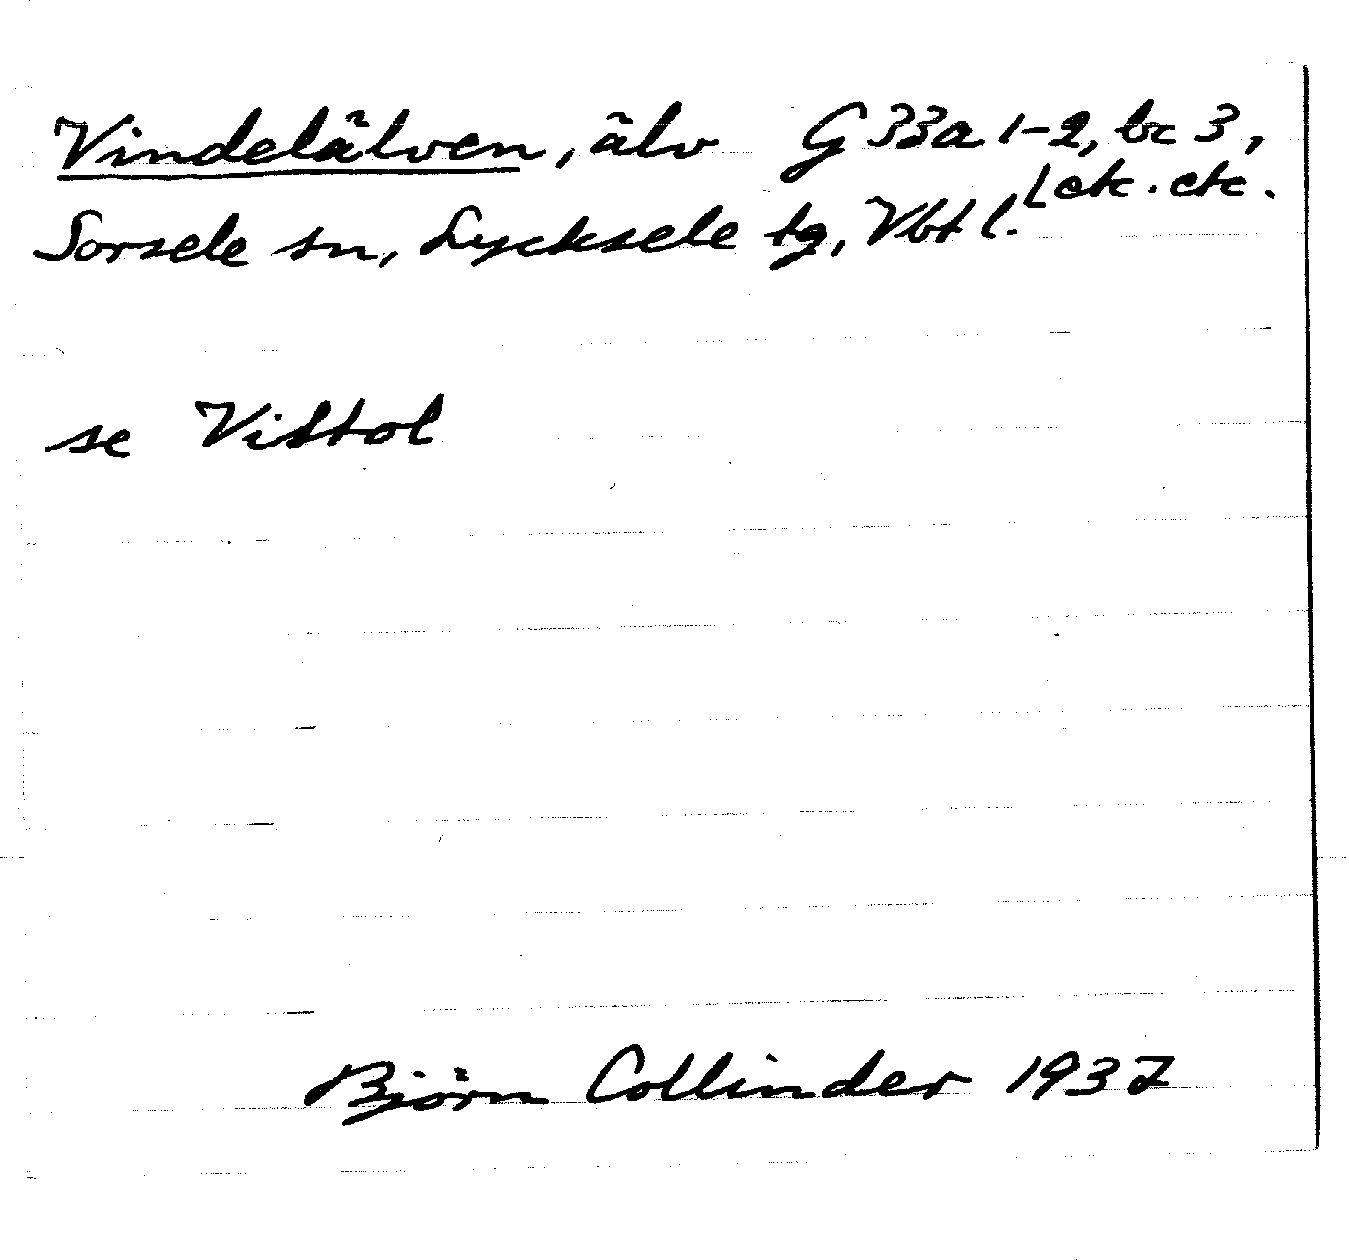 Vindelälven, älv G 33a 1-2, bc 3,
etc. etc.
Sorsele sn, Lycksele tg, Vbt l.
se Vittol
Björn Collinder 1937